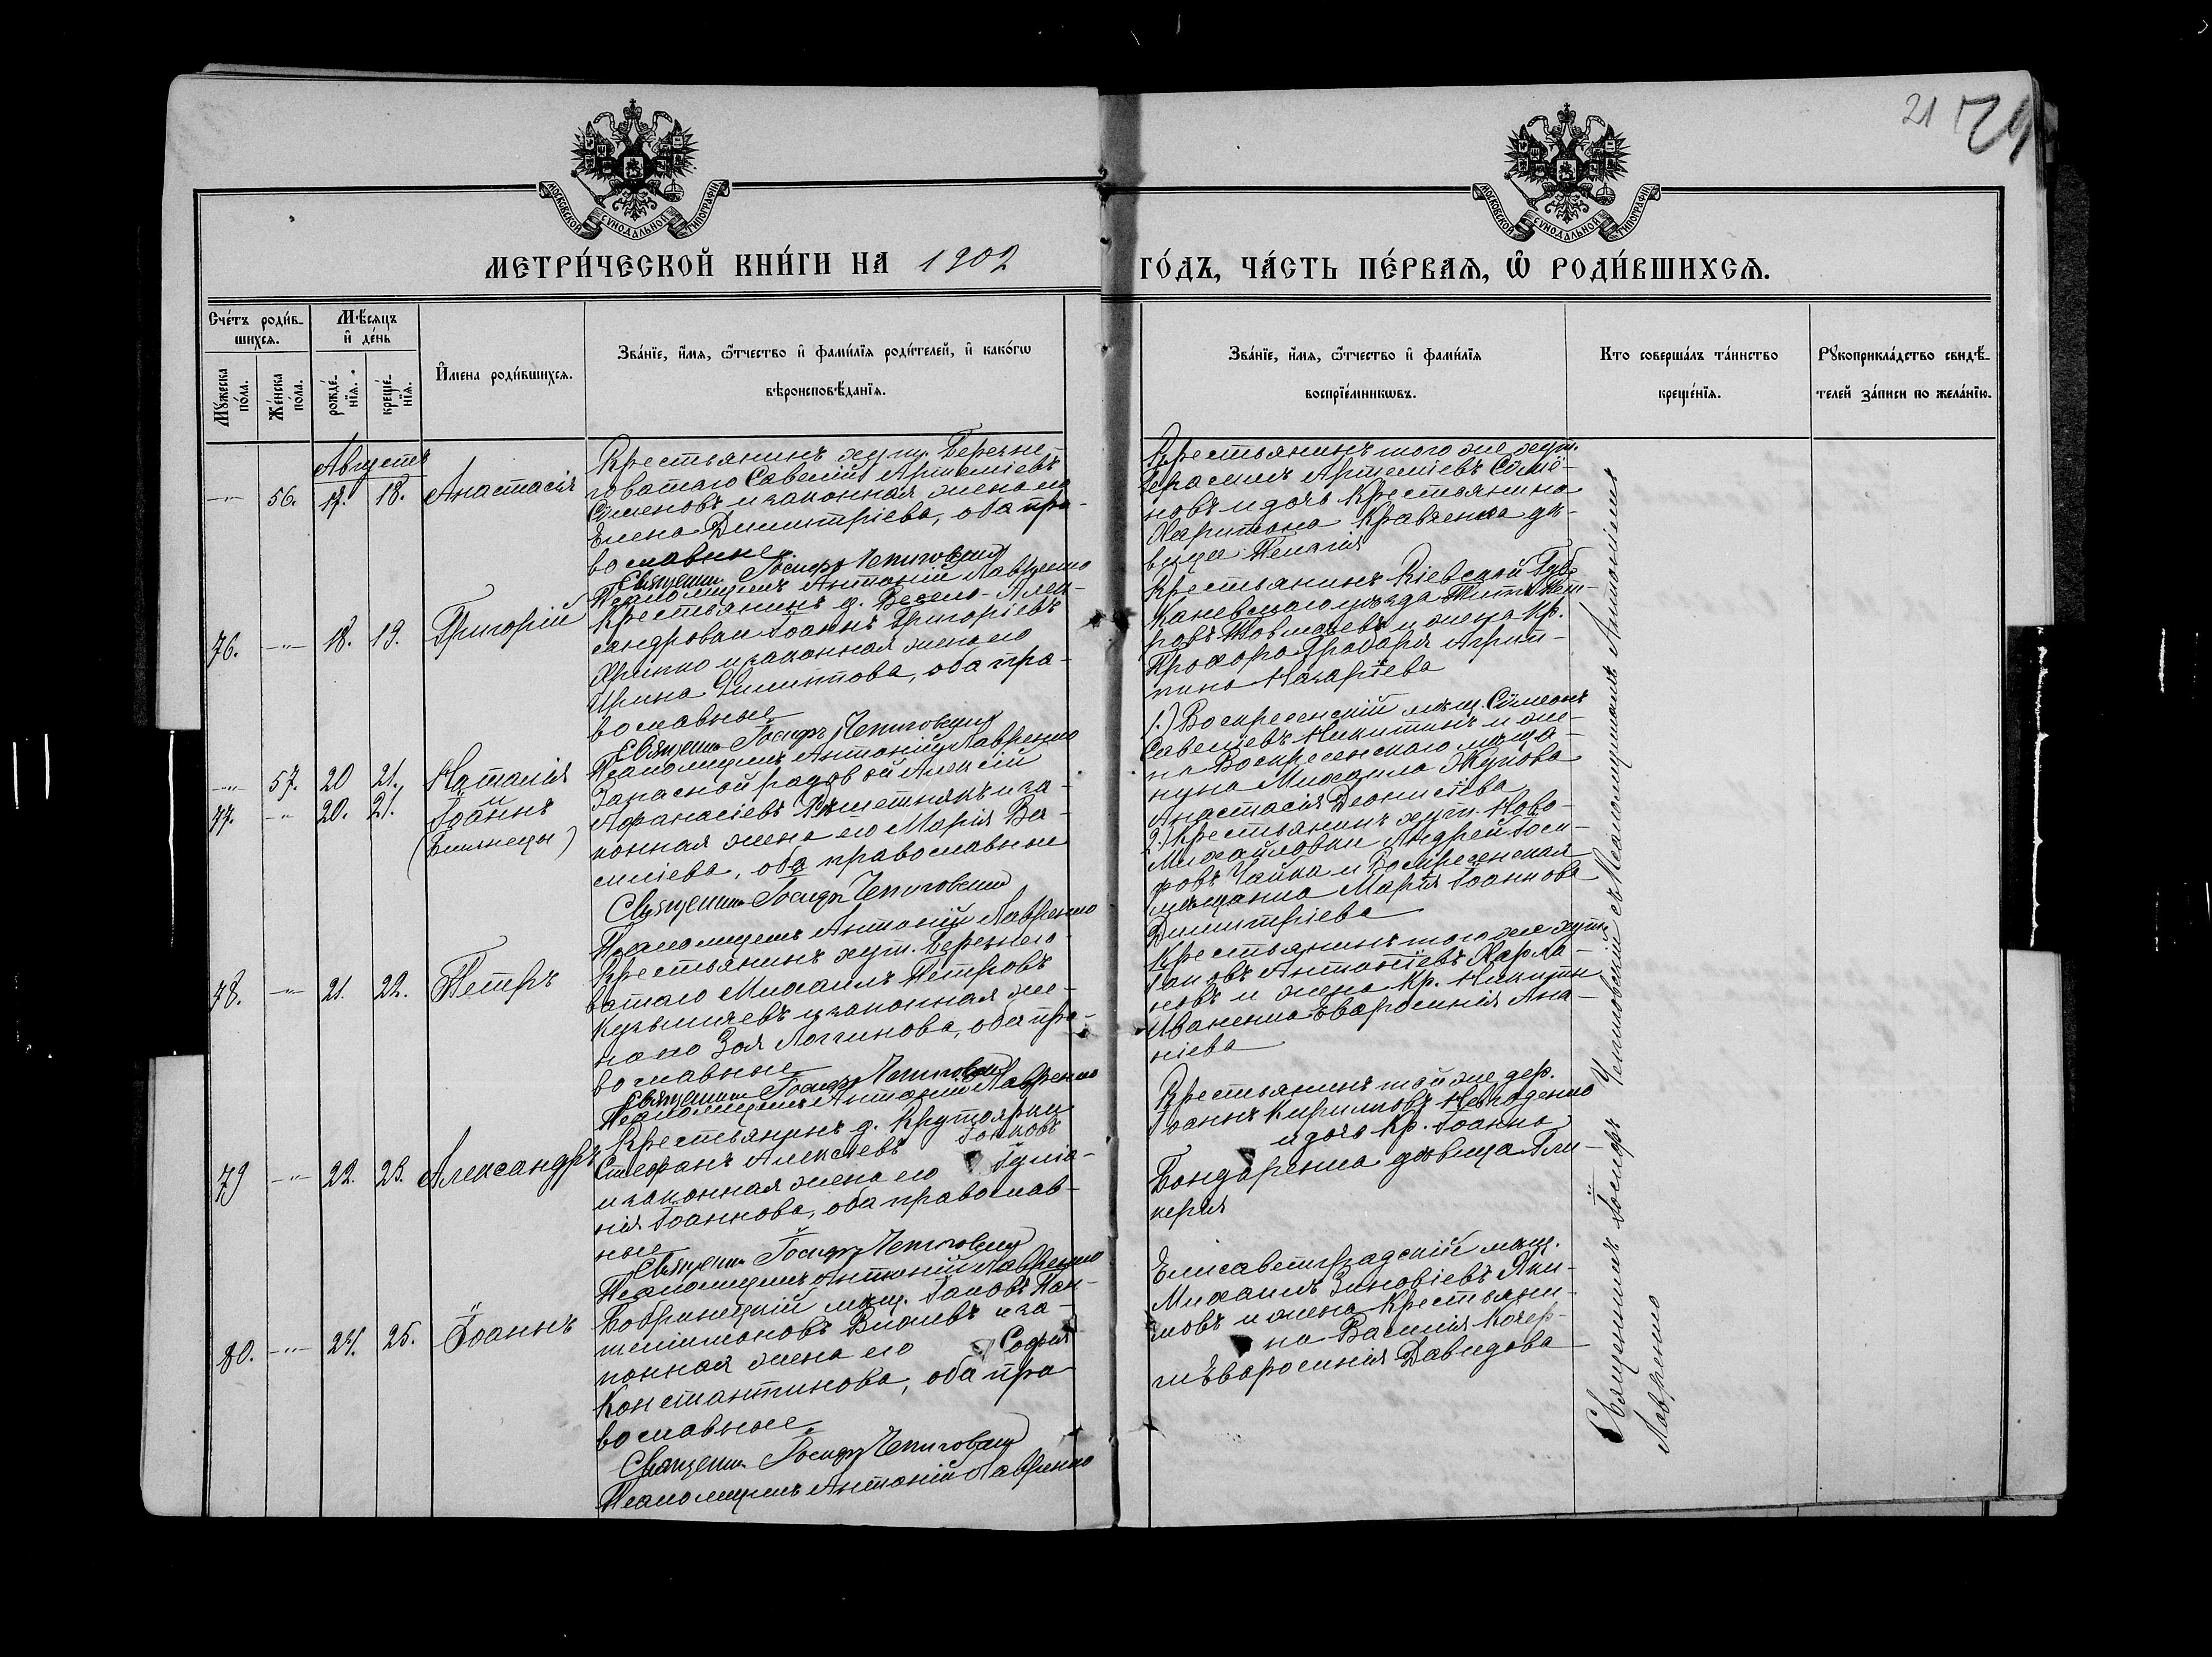 21
МОСКОВСКОЙ СУНОДАЛЬНОЙ ТИПОГРАФІИ
МОСКОВСКОЙ СУНОДАЛЬНОЙ ТИПОГРАФІИ
МЕТРИ́ЧЕСКОЙ КНИ́ГИ НА 1902
ГО́ДЪ, ЧА́СТЬ ПЕ́РВАѦ, Ѿ РОДИ́ВШИХСѦ.
Сче́тъ роди́в-
шихсѧ.
Мꙋ́жеска по́ла.
Же́нска по́ла.
Мѣ́сѧцъ
и҆ де́нь
рожде́-
нїѧ.
креще́-
нїѧ.
И҆мена роди́вшихсѧ.
Зва́нїе, и҆́мѧ, ѻ҆́тчество и҆ фами́лїѧ роди́телей, и҆ како́гѡ
вѣроисповѣ́данїѧ.
Зва́нїе, и҆́мѧ, ѻ҆́тчество и҆ фами́лїѧ
воспрїе́мникѡвъ.
Кто соверша́лъ та́инство
креще́нїѧ.
Рꙋкоприкла́дство свидѣ́-
телей за́писи по жела́нїю.
Августъ
56. 17. 18. Анастасія
Крестьянинъ хут. Беречне-
говатаго Савелій Артеміевъ
Семеновъ и законная жена его
Елена Димитріева, оба пра-
вославные.
Священ. Іосифъ
Псаломщикъ Антоній Лавренко
Крестьянинъ того же хут.
Герасимъ Артеміевъ Семе-
новъ и дочь Крестьянина
Харитона Кравченка дѣ-
вица Пелагія
76. 18. 19. Григорій
Крестьянинъ д. Весело-Алек-
сандровки Іоаннъ Григоріевъ
и законная жена его
Ирина оба пра-
вославные
Священ. Іосифъ
Псаломщикъ Антоній Лавренко
Крестьянинъ Кіевской Губ.
Каневскаго уѣзда Пет-
ровъ и жена кр.
Прохора Грабаря Агрип-
пина Назаріева
57. 20 21. Наталія
77. 20. 21. и Іоаннъ
(близнецы)
Запасной рядовой Алексій
Афанасіевъ Рѣшетнякъ и за-
конная жена его Марія Ва-
силіева, оба православные
Священ. Іосифъ
Псаломщикъ Антоній Лавренко
1.) Воскресенскій мѣщ. Сѵмеонъ
Савеліевъ Никитинъ и же-
на Воскресенскаго мѣща-
нина Михаила Жукова
Анастасія Діонисіева
2.) Крестьянинъ хут. Ново-
Михайловки Андрей Іоси-
фовъ Чайка и Воскресенская
мѣщанка Марія Іоаннова
Димитріева
78. 21. 22. Петръ
Крестьянинъ хут. Беречнего-
ватаго Михаилъ Петровъ
и законная же-
на его Зоя Логгинова, оба пра-
вославные
Священ. Іосифъ
Псаломщикъ Антоній Лавренко
Крестьянинъ того же хут.
Іаковъ Антоніевъ Харла-
новъ и жена кр. Никиты
Иваненка Ефросинія Ана-
ніева
79 22. 23. Александръ
Крестьянинъ д. Крутоярки
Стефанъ Алексіевъ
и законная жена его Іуліа-
нія Іоаннова, оба православ-
ные
Священ. Іосифъ
Псаломщикъ Антоній Лавренко
Крестьянинъ той же дер.
Іоаннъ Кирилловъ
и дочь кр. Іоанна
Бондаренка дѣвица Гли-
керія
80. 24. 25. Іоаннъ
Бобринецкій мѣщ. Іаковъ Пан-
телимоновъ и за-
конная жена его Софія
Константинова, оба пра
вославные
Священ. Іосифъ
Псаломщикъ Антоній Лавренко
Елисаветградскій мѣщ.
Михаилъ Зиновіевъ Яки-
мовъ и жена Крестьяни-
на Василія
Ефросинія Давидова
Священникъ Іосифъ съ Псаломщикомъ Антоніемъ
Лавренко